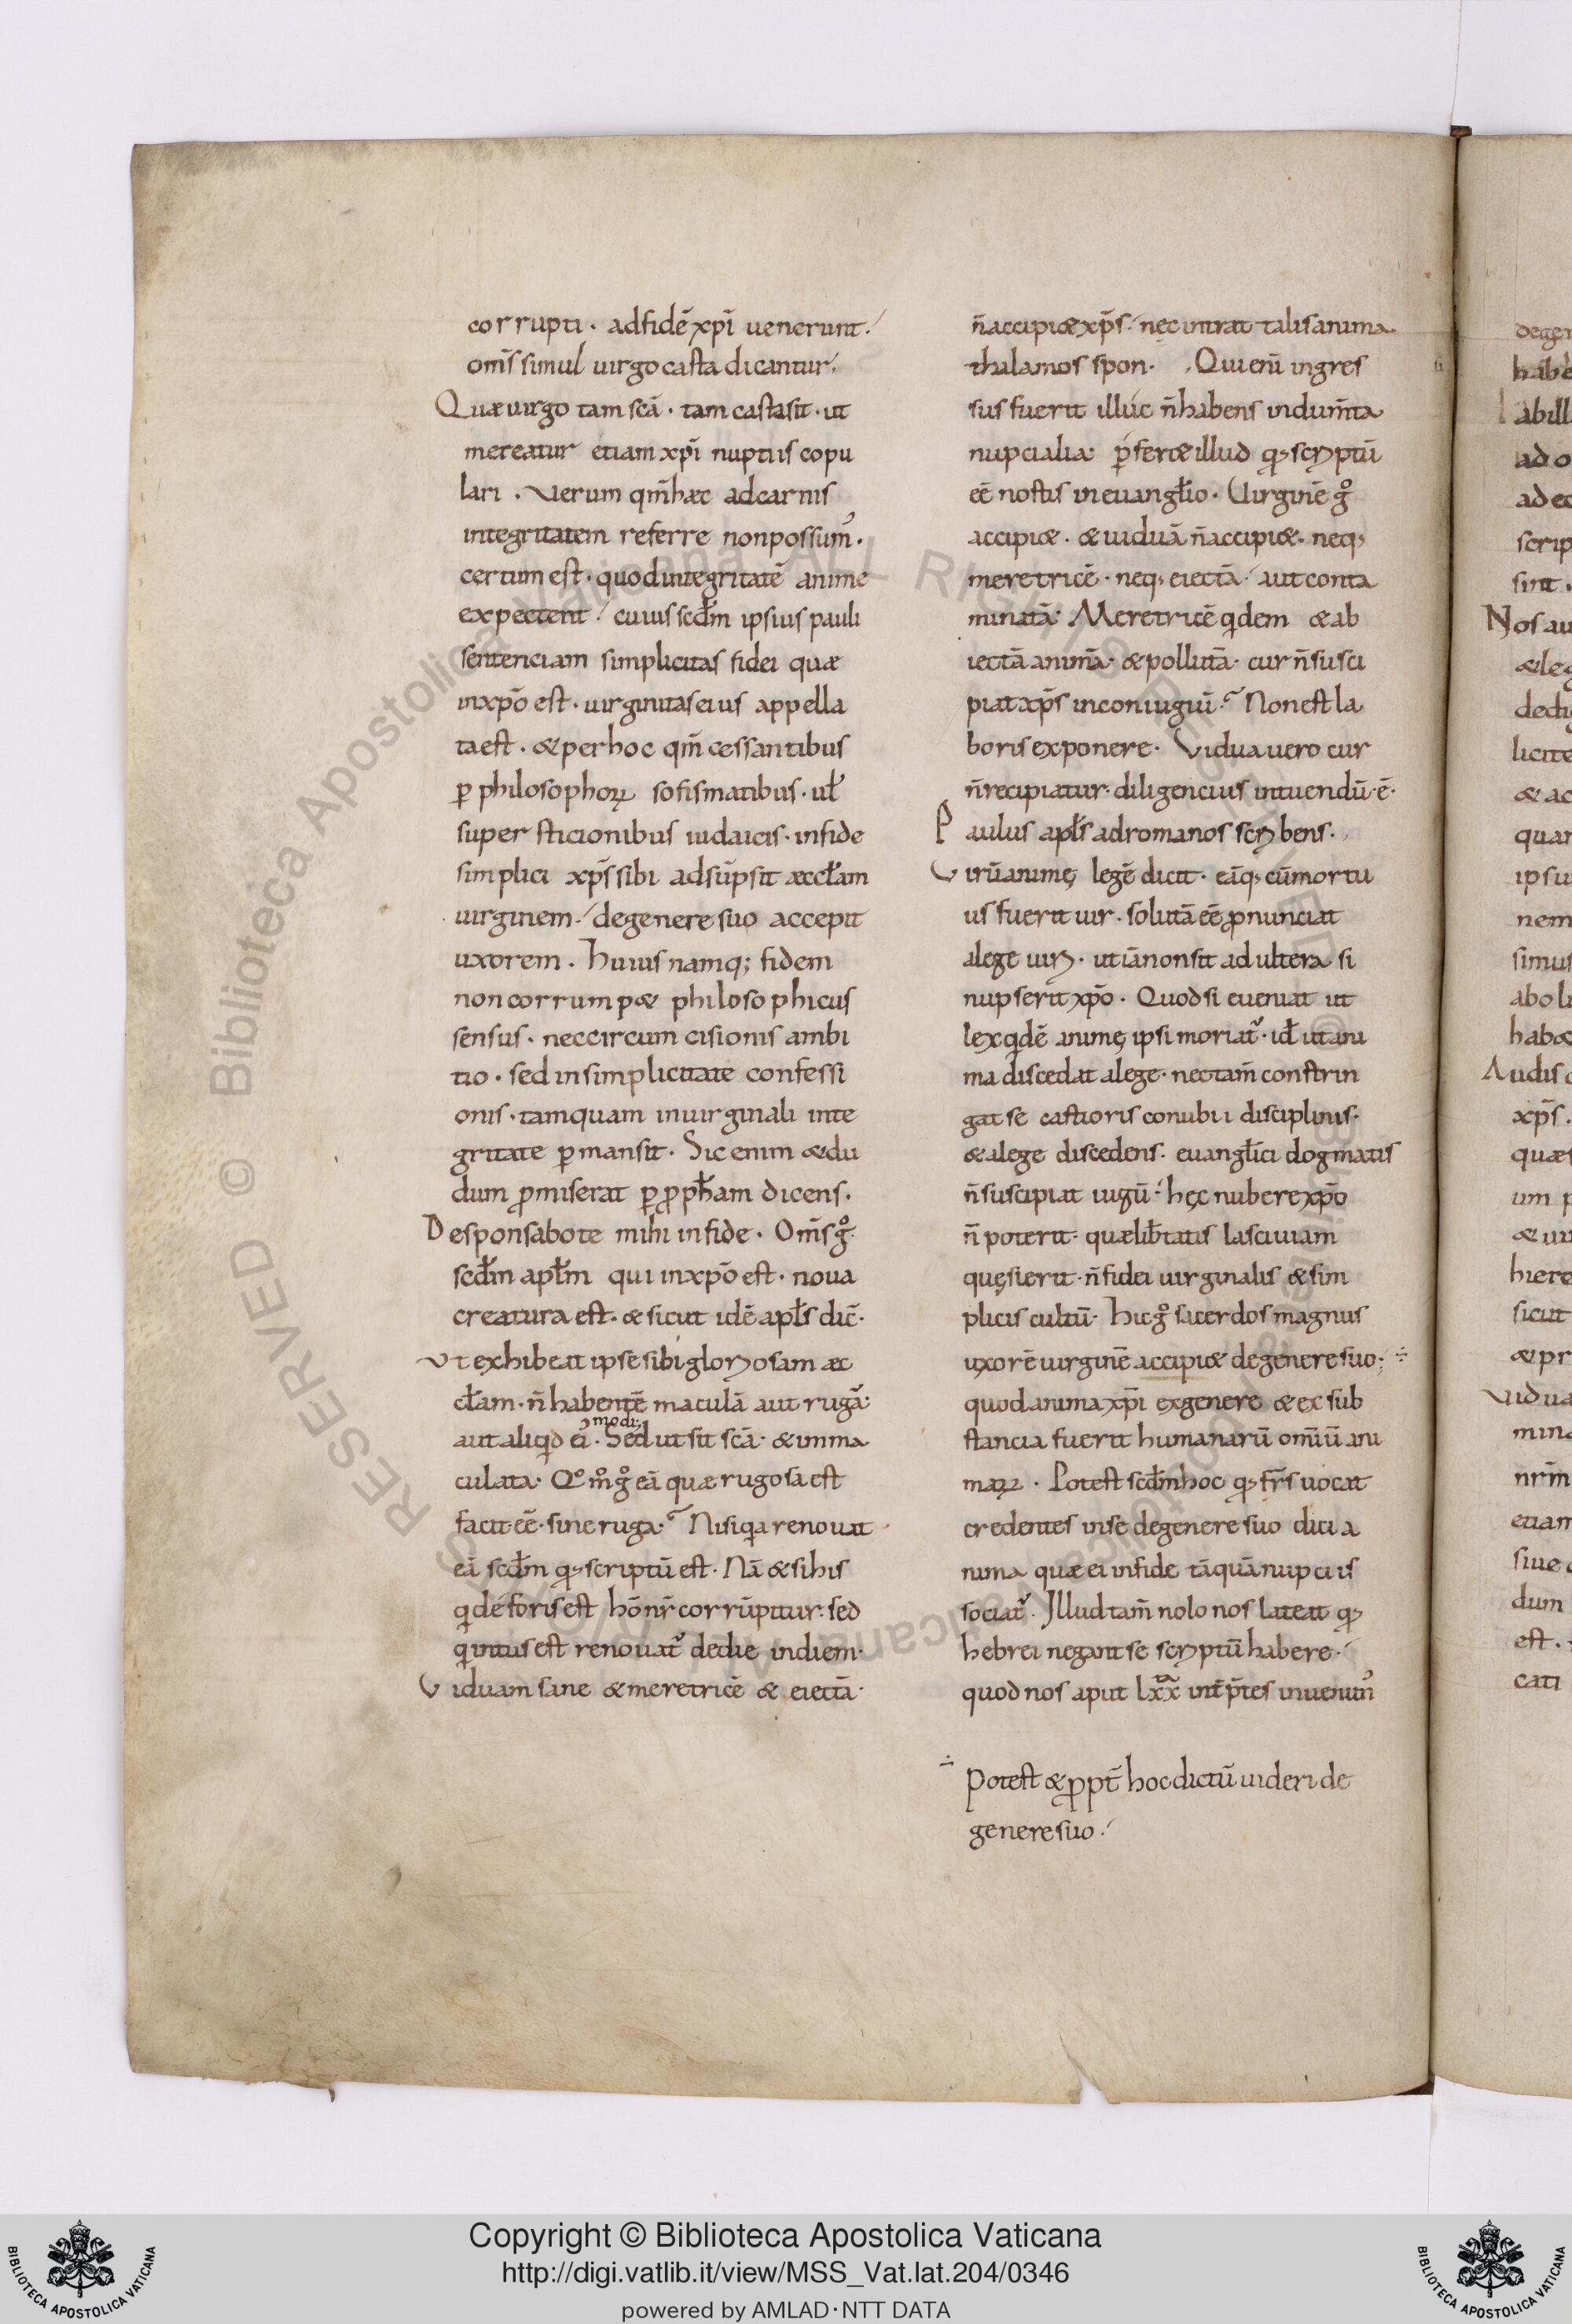 corrupti · adfidē xp̄i uenerunt·
om̄s simul uirgo casta dicantur·
Quæ uirgo tam sc̄a · tam casta sit · ut
mereatur etiam xp̄i nuptiis copu
lari · Verum qm̄ hæc ad carnis
integritatem referre non possum᾽ ·
certum est · quod integritatē anime
expectent · cuius scd̄m ipsius pauli
sentenciam simplicitas fidei quæ
in xp̄o est · uirginitas eius appella
ta est · & per hoc qm̄ cessantibus
ꝑ philosophoꝝ sofismatibus · ul̄
supersticionibus iudaicis · in fide
simplici xp̄s sibi adsūpsit æccl̄am
uirginem · de genere suo accepit
uxorem · Huius namq; fidem
non corrumpæ philosophicus
sensus · nec circumcisionis ambi
tio · sed in simplicitate confessi
onis · tamquam in uirginali inte
gritate ꝑmansit · Sic enim & du
dum ꝓmiserat ꝑ ꝓph̄am dicens ·
Desponsabo te mihi in fide · Om̄s gͦ
scd̄m apl̄m qui in xp̄o est · noua
creatura est · & sicut idē apl̄s dic̄ ·
Ut exhibeat ipse sibi gloriosam æc
cl̄am · n̄ habentē maculā aut rugā·
aut aliqid ei᾽ modi; · Sed ut sit sc̄a · & imma
culata · Qͦmͦ gͦ eā quæ rugosa est
facit eē · sine ruga · Nisi qia renouat
eā scd̄m qꝫ scriptū est · Nā & si his
qi dē foris est hō nr̄ corrūpitur · sed
qi intus est renouat᾽ de die in diem ·
Viduam sane & meretricē & eiectā ·
n̄ accipiæ xp̄s · nec intrat talis anima
thalamos spon · Qui eni ingres
sus fuerit illuc n̄ habens indum̄ta
nupcialia · ꝑferæ illud qꝫ scriptū
eē nostis in euangl̄io · Virginē gͦ
accipiæ · & uiduā n̄ accipiæ · neqꝫ
meretricē · neqꝫ eiectā · aut conta
minatā · Meretricē qidem & ab
iectā animā · & pollutā · cur n̄ susci
piat xp̄s in coniugiū · Non est la
boris exponere · Vidua uero cur
n̄ recipiatur · diligencius intuendū ·ē·
Paulus apl̄s ad romanos scribens ·
Virū animę legē dicit · eāqꝫ cū mortu
us fuerit uir · solutā eē ꝓnunciat
a lege uiri · ut iā non sit adultera si
nupserit xp̄o · Quod si eueniat ut
lex qidē animę ipsi moriat᾽ · id̄ ut ani
ma discedat a lege · nec tam̄ constrin
gat se castioris conubii disciplinis·
& a lege discedens · euangl̄ici dogmatis
n̄ suscipiat iugū · hęc nubere xp̄o
n̄ poterit · quæ lib̄tatis lasciuiam
quęsierit · n̄ fidei uirginalis & sim
plicis cultū · Hic gͦ sacerdos magnus
uxorē uirginē accipiæ de genere suo; ÷
quod anima xp̄i ex genere & ex sub
stancia fuerit humanarū omniū ani
maꝝ · Potest scd̄m hoc qꝫ fr̄s uocat
credentes in se de genere suo dici a
nima quæ ei in fide tāquā nupciis
sociat᾽ · Illud tam̄ nolo nos lateat qꝫ
hebrei negant se scriptū habere ·
quod nos aput lxx int̄p̄tes inuenim᾽
÷ Potest & ꝓpt̄ hoc dictū uideri de
genere suo ·
Copyright © Biblioteca Apostolica Vaticana
http://digi.vatlib.it/view/MSS_Vat.lat.204/0346
powered by AMLAD·NTT DATA